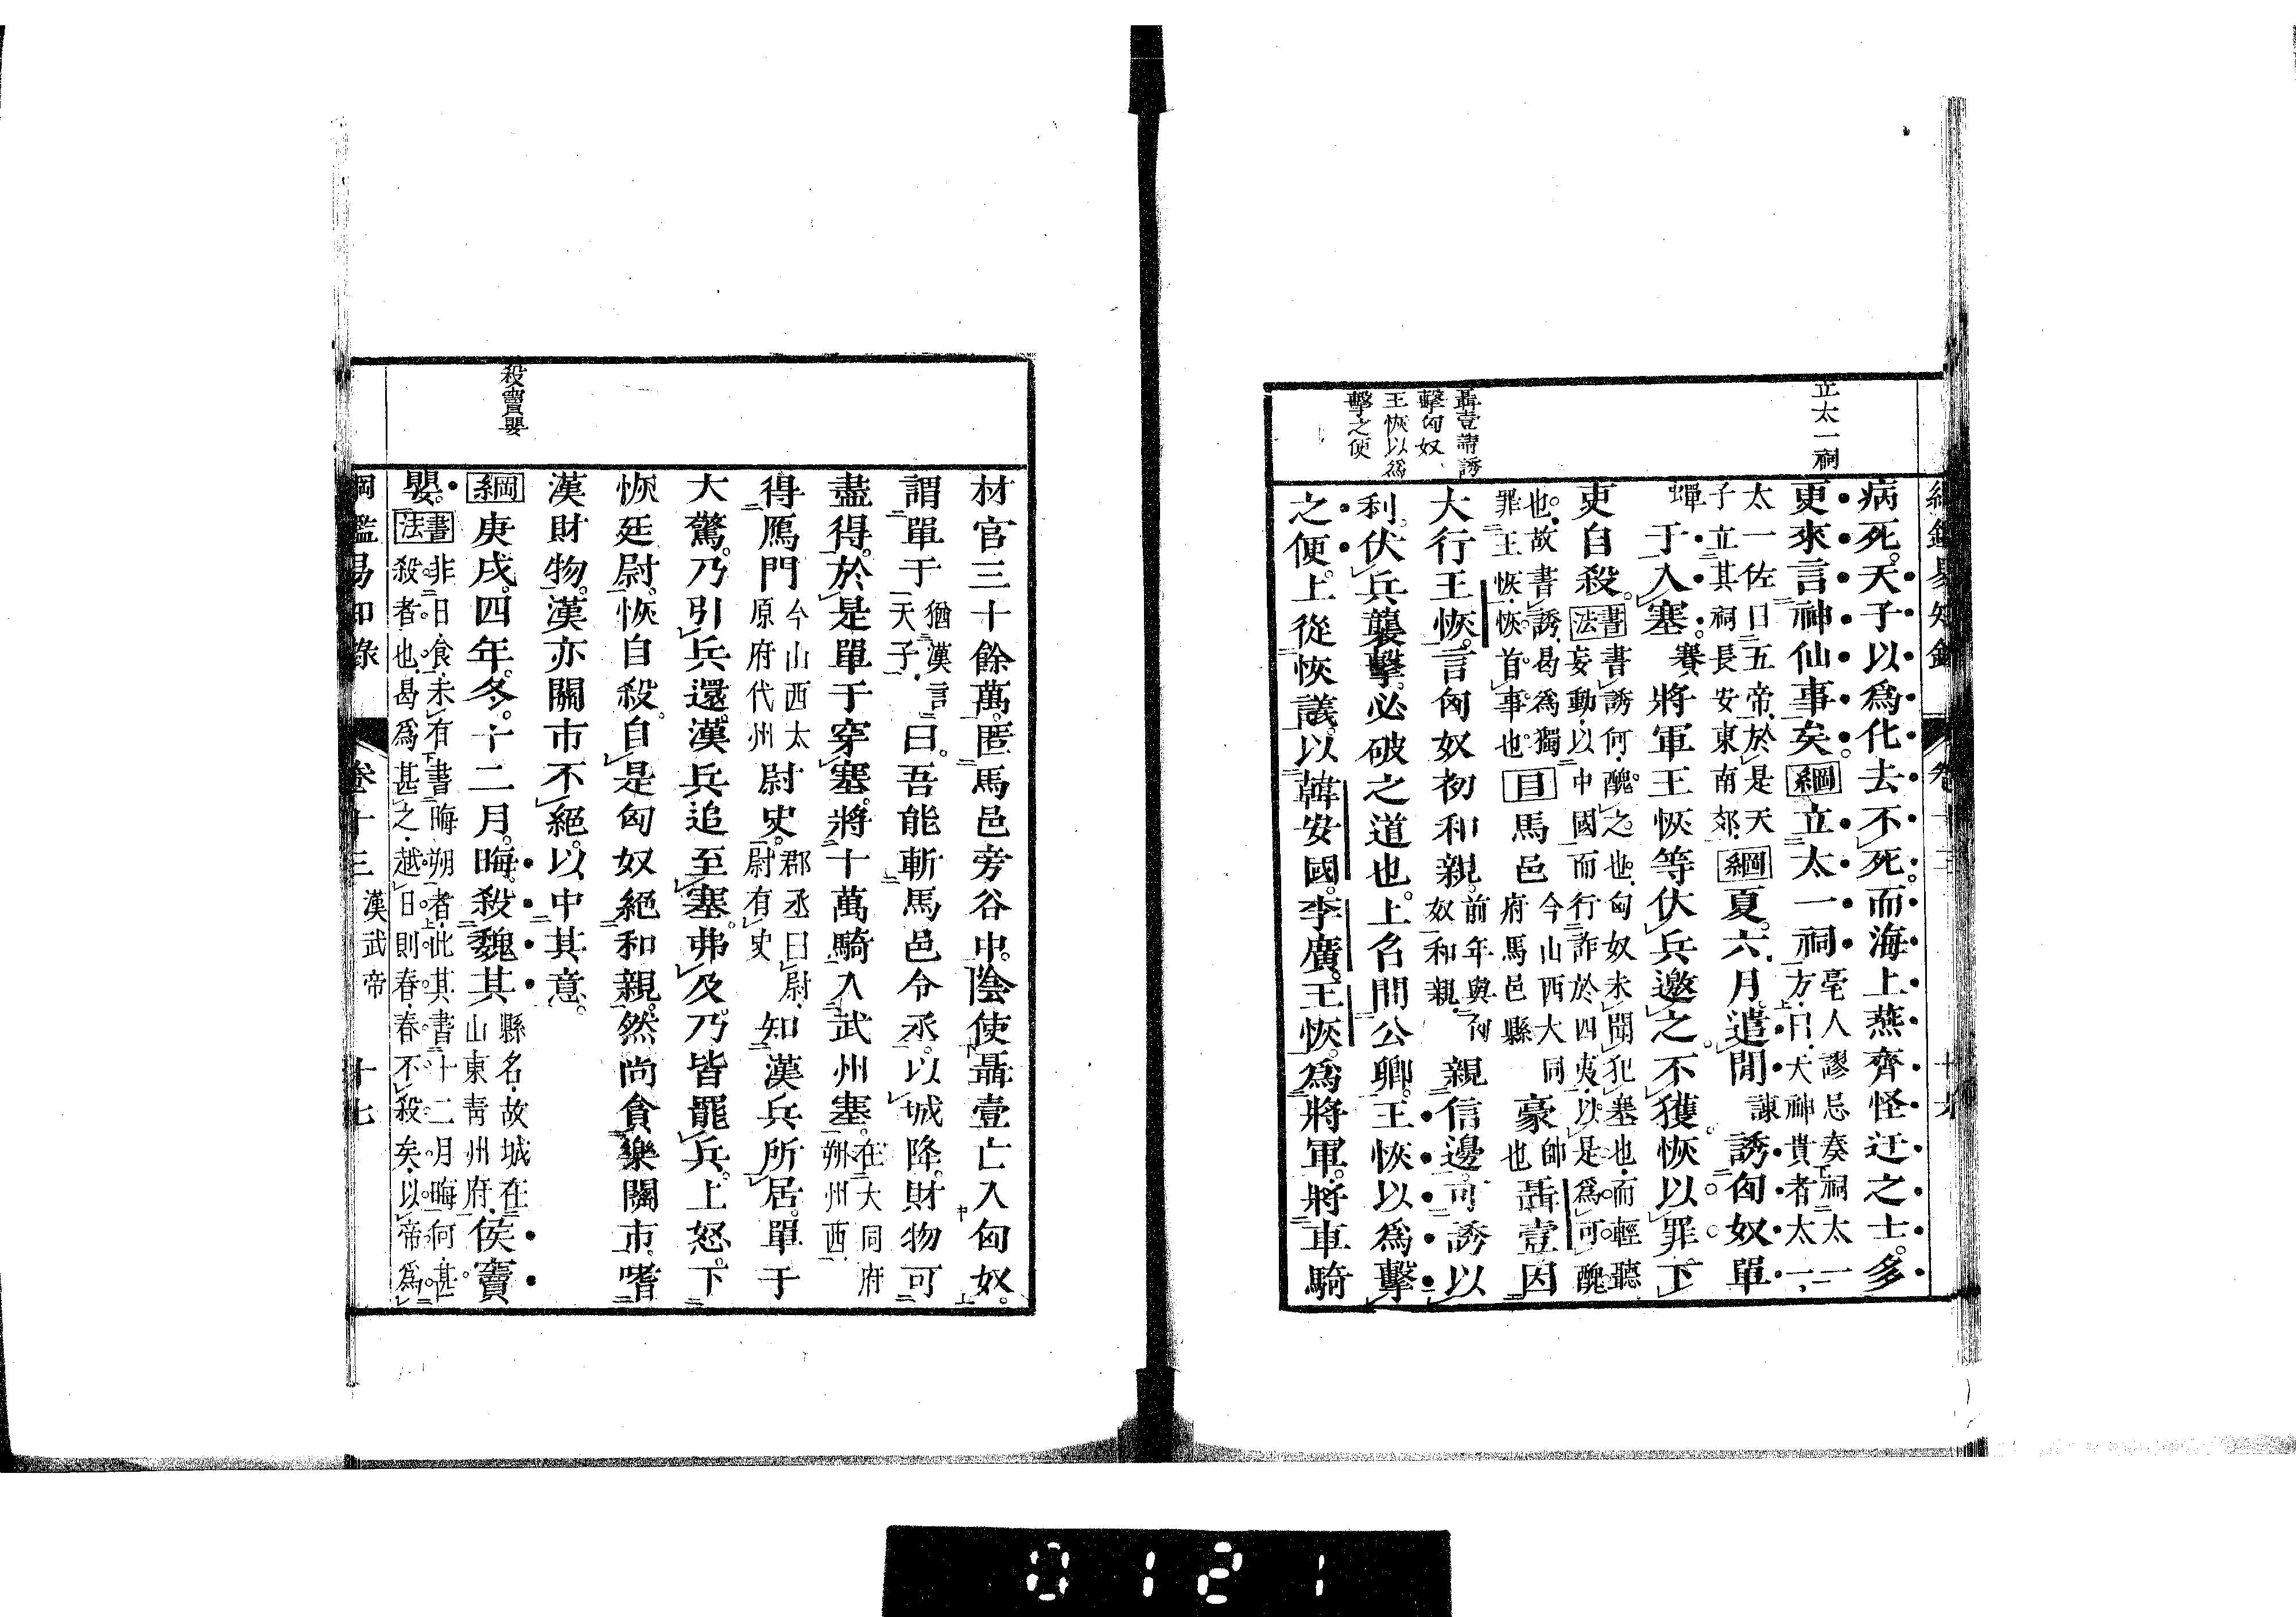 立太一祠
聶壹請誘
擊匈奴
王恢以爲
擊之便
病死。天子以爲化去不死。而海上燕齊怪迂之士。多
更來言神仙事矣。綱立太一祠亳人謬忌奏祠太一
方曰天神貴者太一
太一佐曰五帝於是天
子立其祠長安東南郊綱夏。六月。遣閒諫誘匈奴單
蟬于入塞。賽將軍王恢等伏兵邀之。不獲。恢以罪下
吏自殺。書法書誘何醜之也匈奴未聞犯塞也而輕聽
妄動以中國而行詐於四夷以是爲可醜
也故書誘曷爲獨
罪王恢恢首事也目馬邑今山西大同
府馬邑縣豪帥
也聶壹因
大行王恢。言匈奴初和親。前年與匈
奴和親親信邊。可誘以
利。伏兵襲擊。必破之道也。上名問公卿。王恢以爲擊
之便。上從恢議。以韓安國。李廣。王恢。爲將軍。將車騎
殺竇嬰
材官三十餘萬。匿馬邑旁谷中。陰使聶壹亡入匈奴。
謂單于猶漢言
天子曰。吾能斬馬邑令丞。以城降。財物可
盡得。於是單于穿塞。將十萬騎入武州塞。在大同府
朔州西
得鴈門今山西太
原府代州尉史。郡丞曰尉
尉有史知漢兵所居。單于
大驚。乃引兵還。漢兵追至塞。弗及。乃皆罷兵。上怒。下
恢廷尉。恢自殺。自是匈奴絕和親。然尚貪樂關市。嗜
漢財物。漢亦關市不絕。以中其意。
綱庚戌。四年。冬。十二月。晦。殺魏其縣名故城在
山東青州府侯竇
嬰。書法非日食未有書晦朔者此其書十二月晦何甚
殺者也曷爲甚之越日則春春不殺矣以帝爲
綱鑑易知錄 卷十三 漢武帝 十七